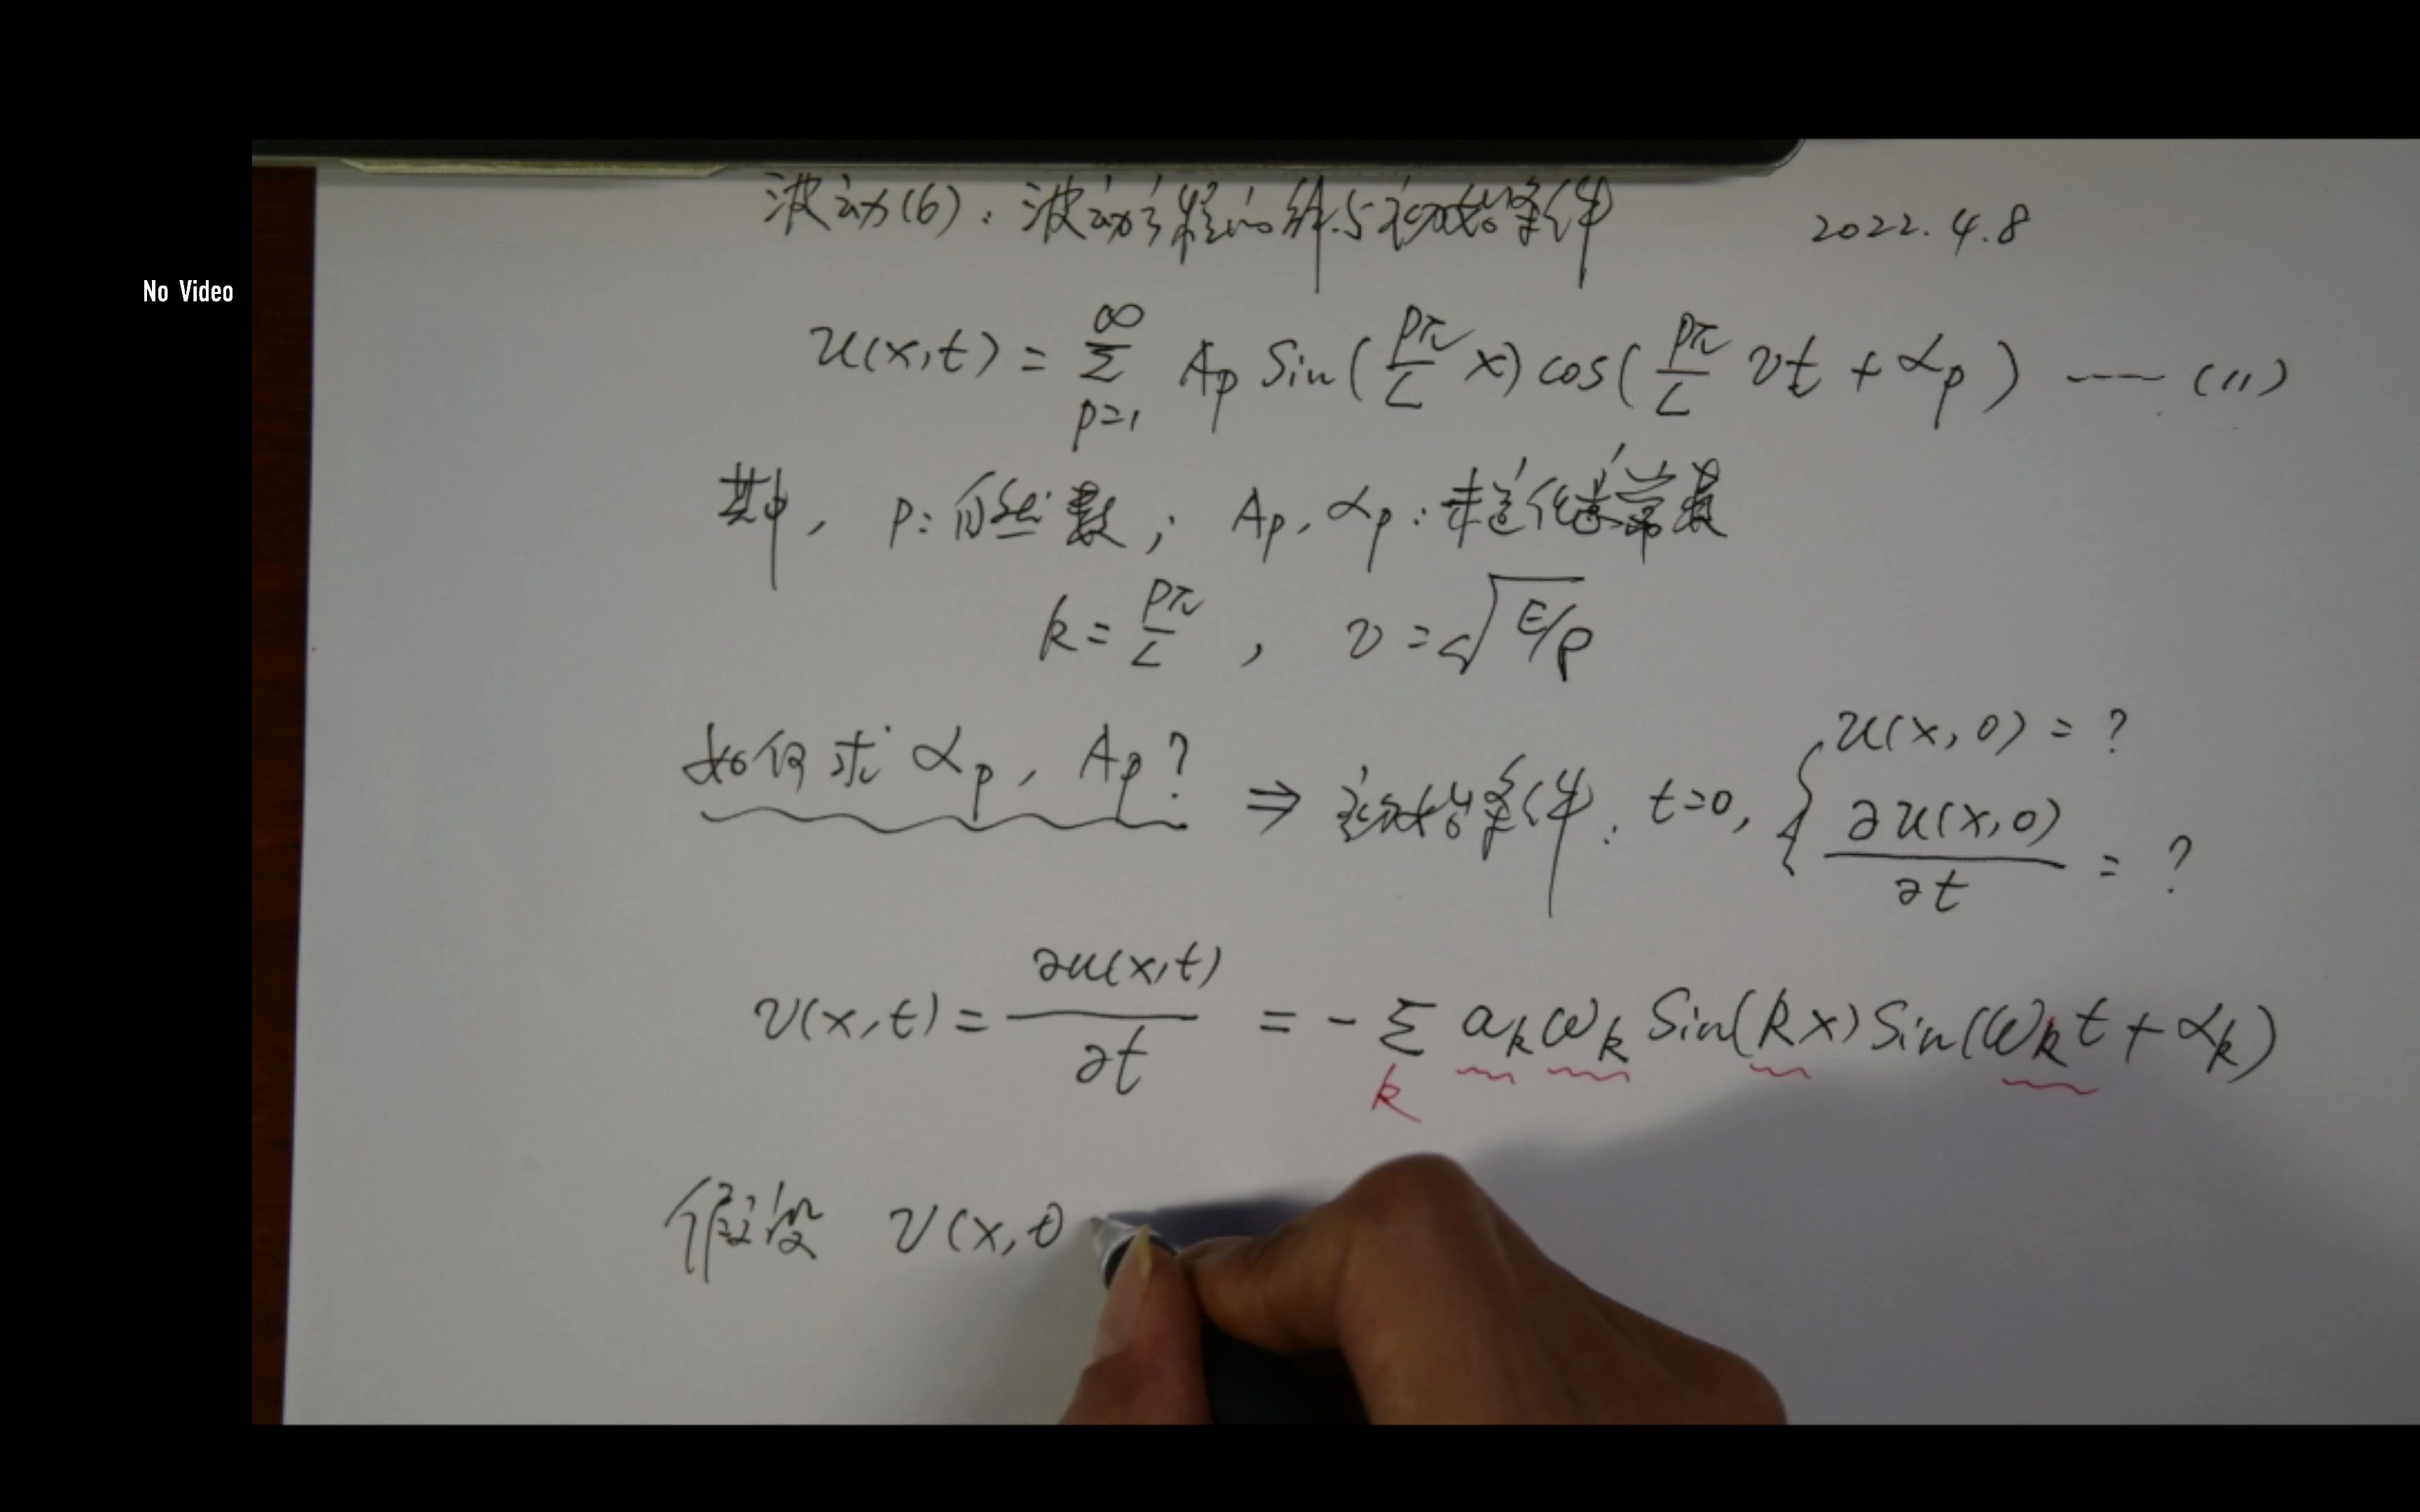 波动(6): 波动方程的解与初始条件 2022.4.8
No Video
u(x,t) = ∞ Σ p=1 Ap Sin(pπ/L x) cos(pπ/L vt + αp) —— (11)
其中, p: 自然数; Ap, αp: 待定常数
k = pπ/L , v = √E/ρ
如何求 αp, Ap? ⇒ 初始条件: t=0, { u(x,0) = ?
∂u(x,0)/∂t = ?
v(x,t) = ∂u(x,t)/∂t = - Σ k ak ωk Sin(kx) Sin(ωk t + αk)
假设 v(x,0)